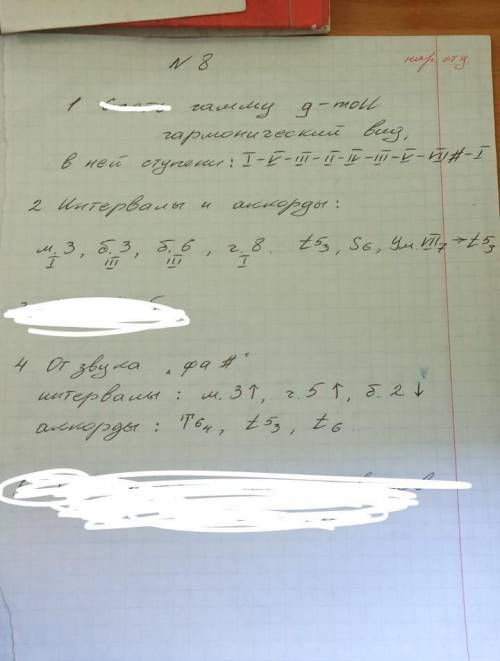 N 8
нар. отд.
1 гамму g-moll
гармонический вид,
в ней ступени: I-V-III-II-IV-III-V-VII#-I
2 Интервалы и аккорды:
м.3, б.3, б.6, ч.8. t5/3, S6, Ум.VII7→t5/3
I III III I
4 От звука "фа #"
интервалы: м.3↑, ч.5↑, б.2↓
аккорды: T6/4, t5/3, t6.